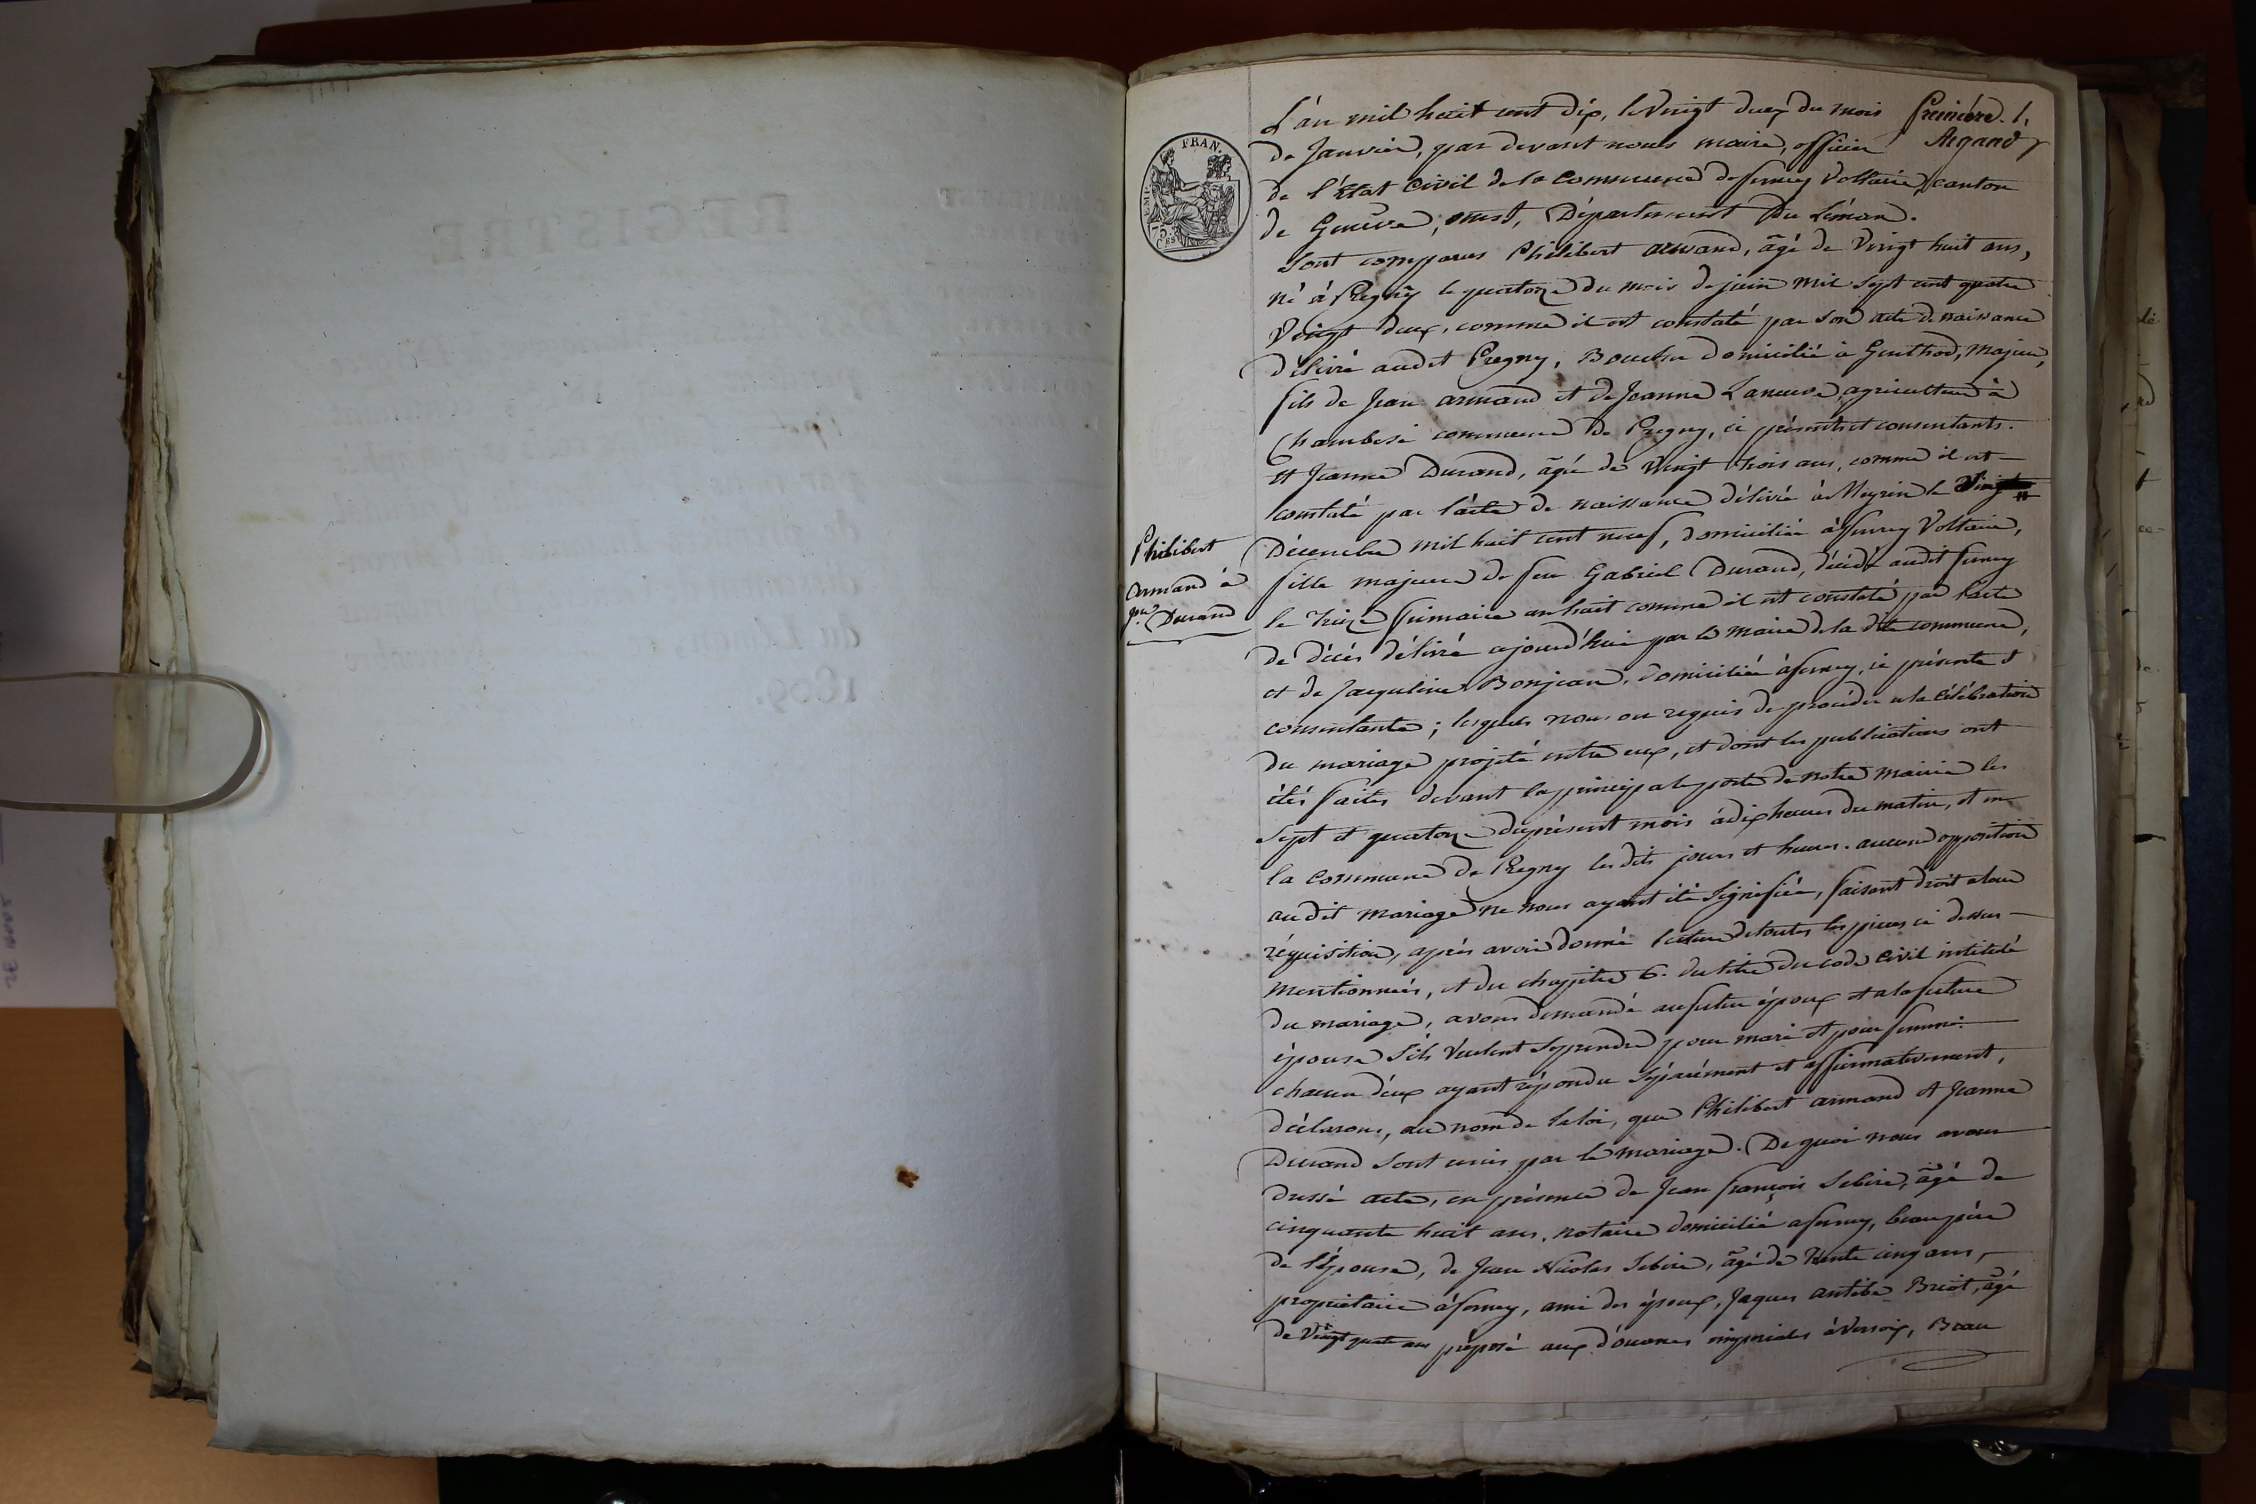 L'an mil huit cent dix, le vingt deux du mois
Première. 1.
Argand
de Janvier, par devant nous maire, officier
de l'État Civil de la Commune de ferney Voltaire, canton
de Genève, ouest, Département du Léman.
Sont comparus Philibert armand, âgé de vingt huit ans,
né à Pregny le quatorze du mois de juin mil sept cent quatre
Vingt deux, comme il est constaté par son acte de naissance
délivré audit Pregny, Boucher domicilié à Genthod, majeur,
fils de Jean armand et de Jeanne Laneuve, agriculteur à
Chambesi commune de Pregny, ci présents et consentants.
Et Jeanne Durand, âgée de vingt trois ans, comme il est
constaté par l'acte de naissance délivré à Meyrin le
Décembre mil huit cent neuf, domiciliée à ferney Voltaire,
fille majeure de feu Gabriel Durand, décédé audit ferney
le treize frimaire an huit comme il est constaté par l'acte
de décès délivré ajourd'hui par le maire de la dite commune,
et de Jacqueline Bonjean, domiciliée à ferney, ci présente et
consentante; lesquels nous on requis de procéder a la célébration
du mariage projeté entre eux, et dont les publications ont
étés faites devant la principale porte de notre mairie les
Sept et quatorze du présent mois à dix heures du matin, et en
la commune de Pregny les dits jours et heures. aucune opposition
au dit mariage ne nous ayant été signifiée, faisant droit a leur
réquisition, après avoir donné lecture de toutes les pièces ci dessus
mentionnées, et du chapitre 6. du titre du code Civil intitulé
du mariage, avons demandé au futur époux et a la future
épouse s'ils veulent se prendre pour mari et pour femme:
chacun d'eux ayant répondu séparément et affirmativement,
déclarons, au nom de la loi, que Philibert armand et Jeanne
Durand sont unis par le mariage. De quoi nous avons
dressé acte, en présence de Jean françois Sebire, âgé de
cinquante huit ans, notaire domicilié a ferney, beau père
de l'épouse, de Jean Nicolas Sebire, âgé de trente cinq ans,
propriétaire à ferney, ami des époux, Jaques antibe Briot, âgé
de Vingt quatre ans préposé aux douanes impériales à Versoix, Beau
Philibert
Armand à
Jne Durand
EMP. FRAN.
75.
CES
REGISTRE
1809.